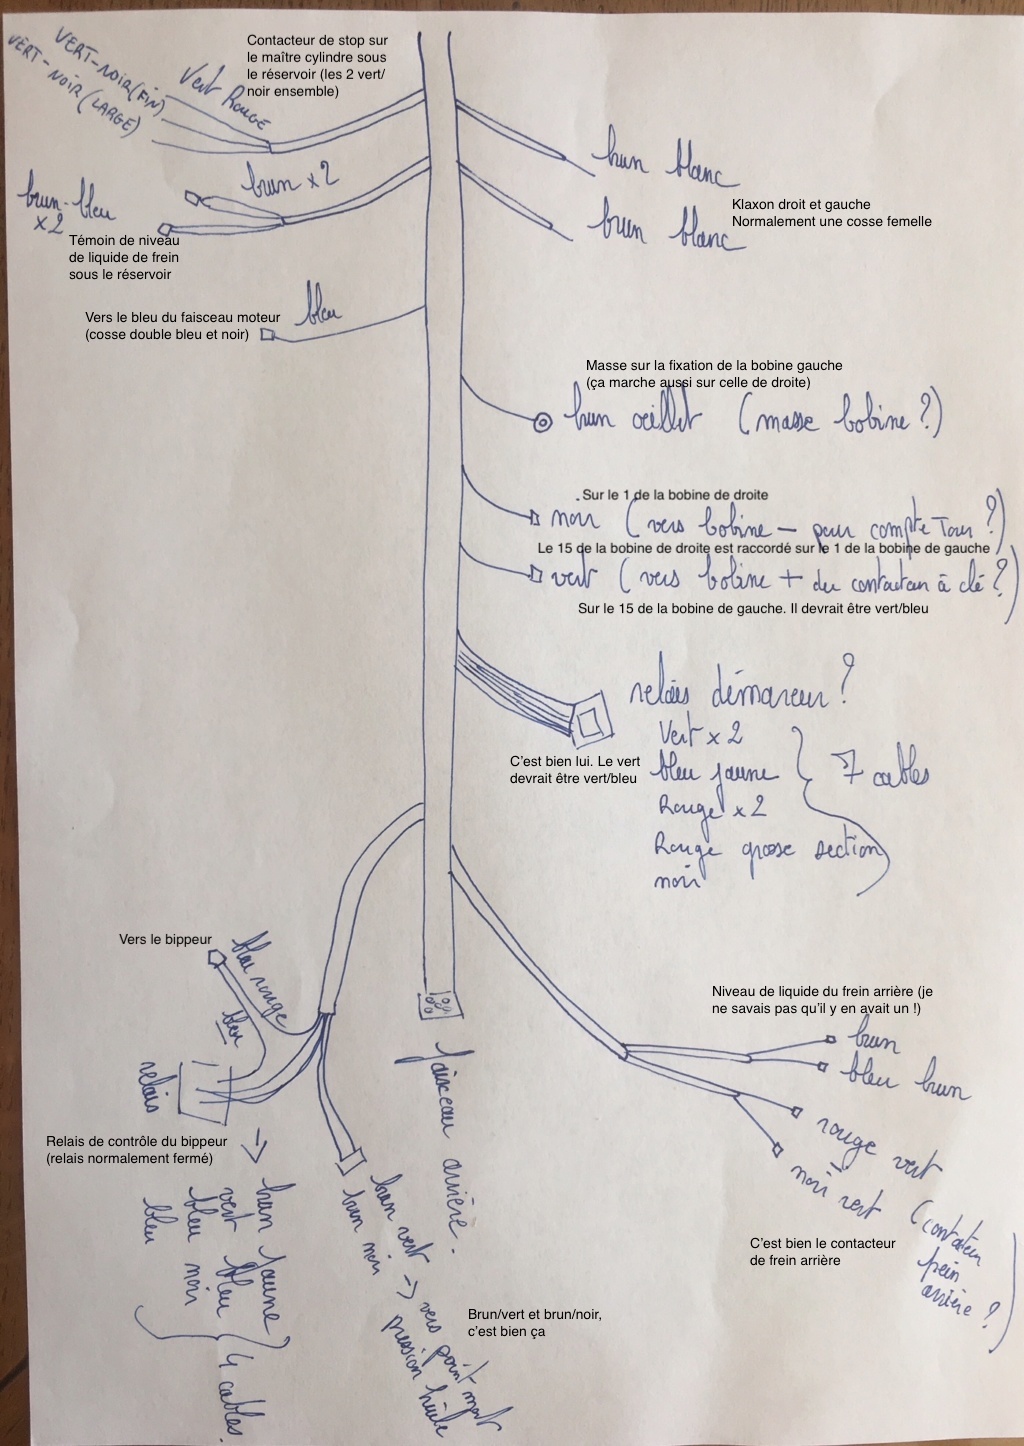 VERT-NOIR (FIN)
VERT-NOIR (LARGE)
Vert Rouge
Contacteur de stop sur
le maître cylindre sous
le réservoir (les 2 vert/
noir ensemble)
brun blanc
brun x2
brun-bleu
x2
Témoin de niveau
de liquide de frein
sous le réservoir
brun blanc
Klaxon droit et gauche
Normalement une cosse femelle
bleu
Vers le bleu du faisceau moteur
(cosse double bleu et noir)
Masse sur la fixation de la bobine gauche
(ça marche aussi sur celle de droite)
brun oeillet (masse bobine ?)
. Sur le 1 de la bobine de droite
noir (vers bobine – pour compte Tour ?)
Le 15 de la bobine de droite est raccordé sur le 1 de la bobine de gauche
vert (vers bobine + du contacteur à clé ?)
Sur le 15 de la bobine de gauche. Il devrait être vert/bleu
relais démareur ?
Vert x 2
bleu jaune
Rouge x2
Rouge grosse section
noir
7 cables
C'est bien lui. Le vert
devrait être vert/bleu
Vers le bippeur
bleu rouge
bleu
relais
Relais de contrôle du bippeur
(relais normalement fermé)
brun jaune
vert bleu
bleu noir
bleu
4 cables.
brun vert
brun noir
-> vers point mort
pression huile
Brun/vert et brun/noir,
c'est bien ça
faisceau arrière.
Niveau de liquide du frein arrière (je
ne savais pas qu'il y en avait un !)
brun
bleu brun
rouge vert
noir vert (contacteur
frein
arrière ?)
C'est bien le contacteur
de frein arrière